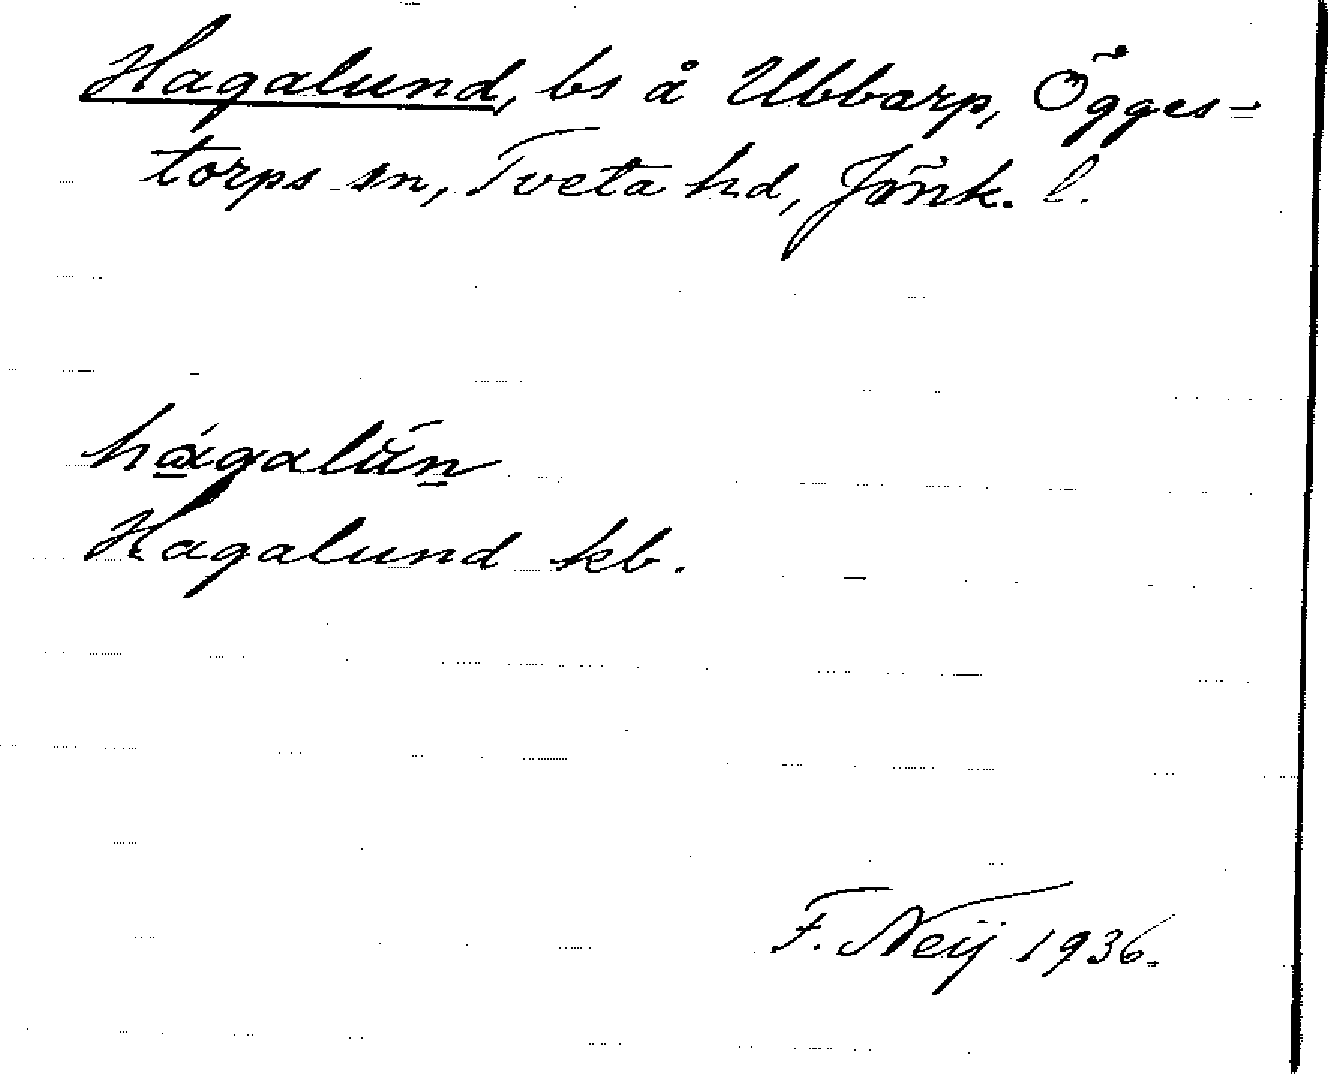 Hagalund, bs å Ubbarp, Ögges-
torps sn, Tveta hd, Jönk. l.
hágalun
Hagalund kb.
F. Neij 1936.